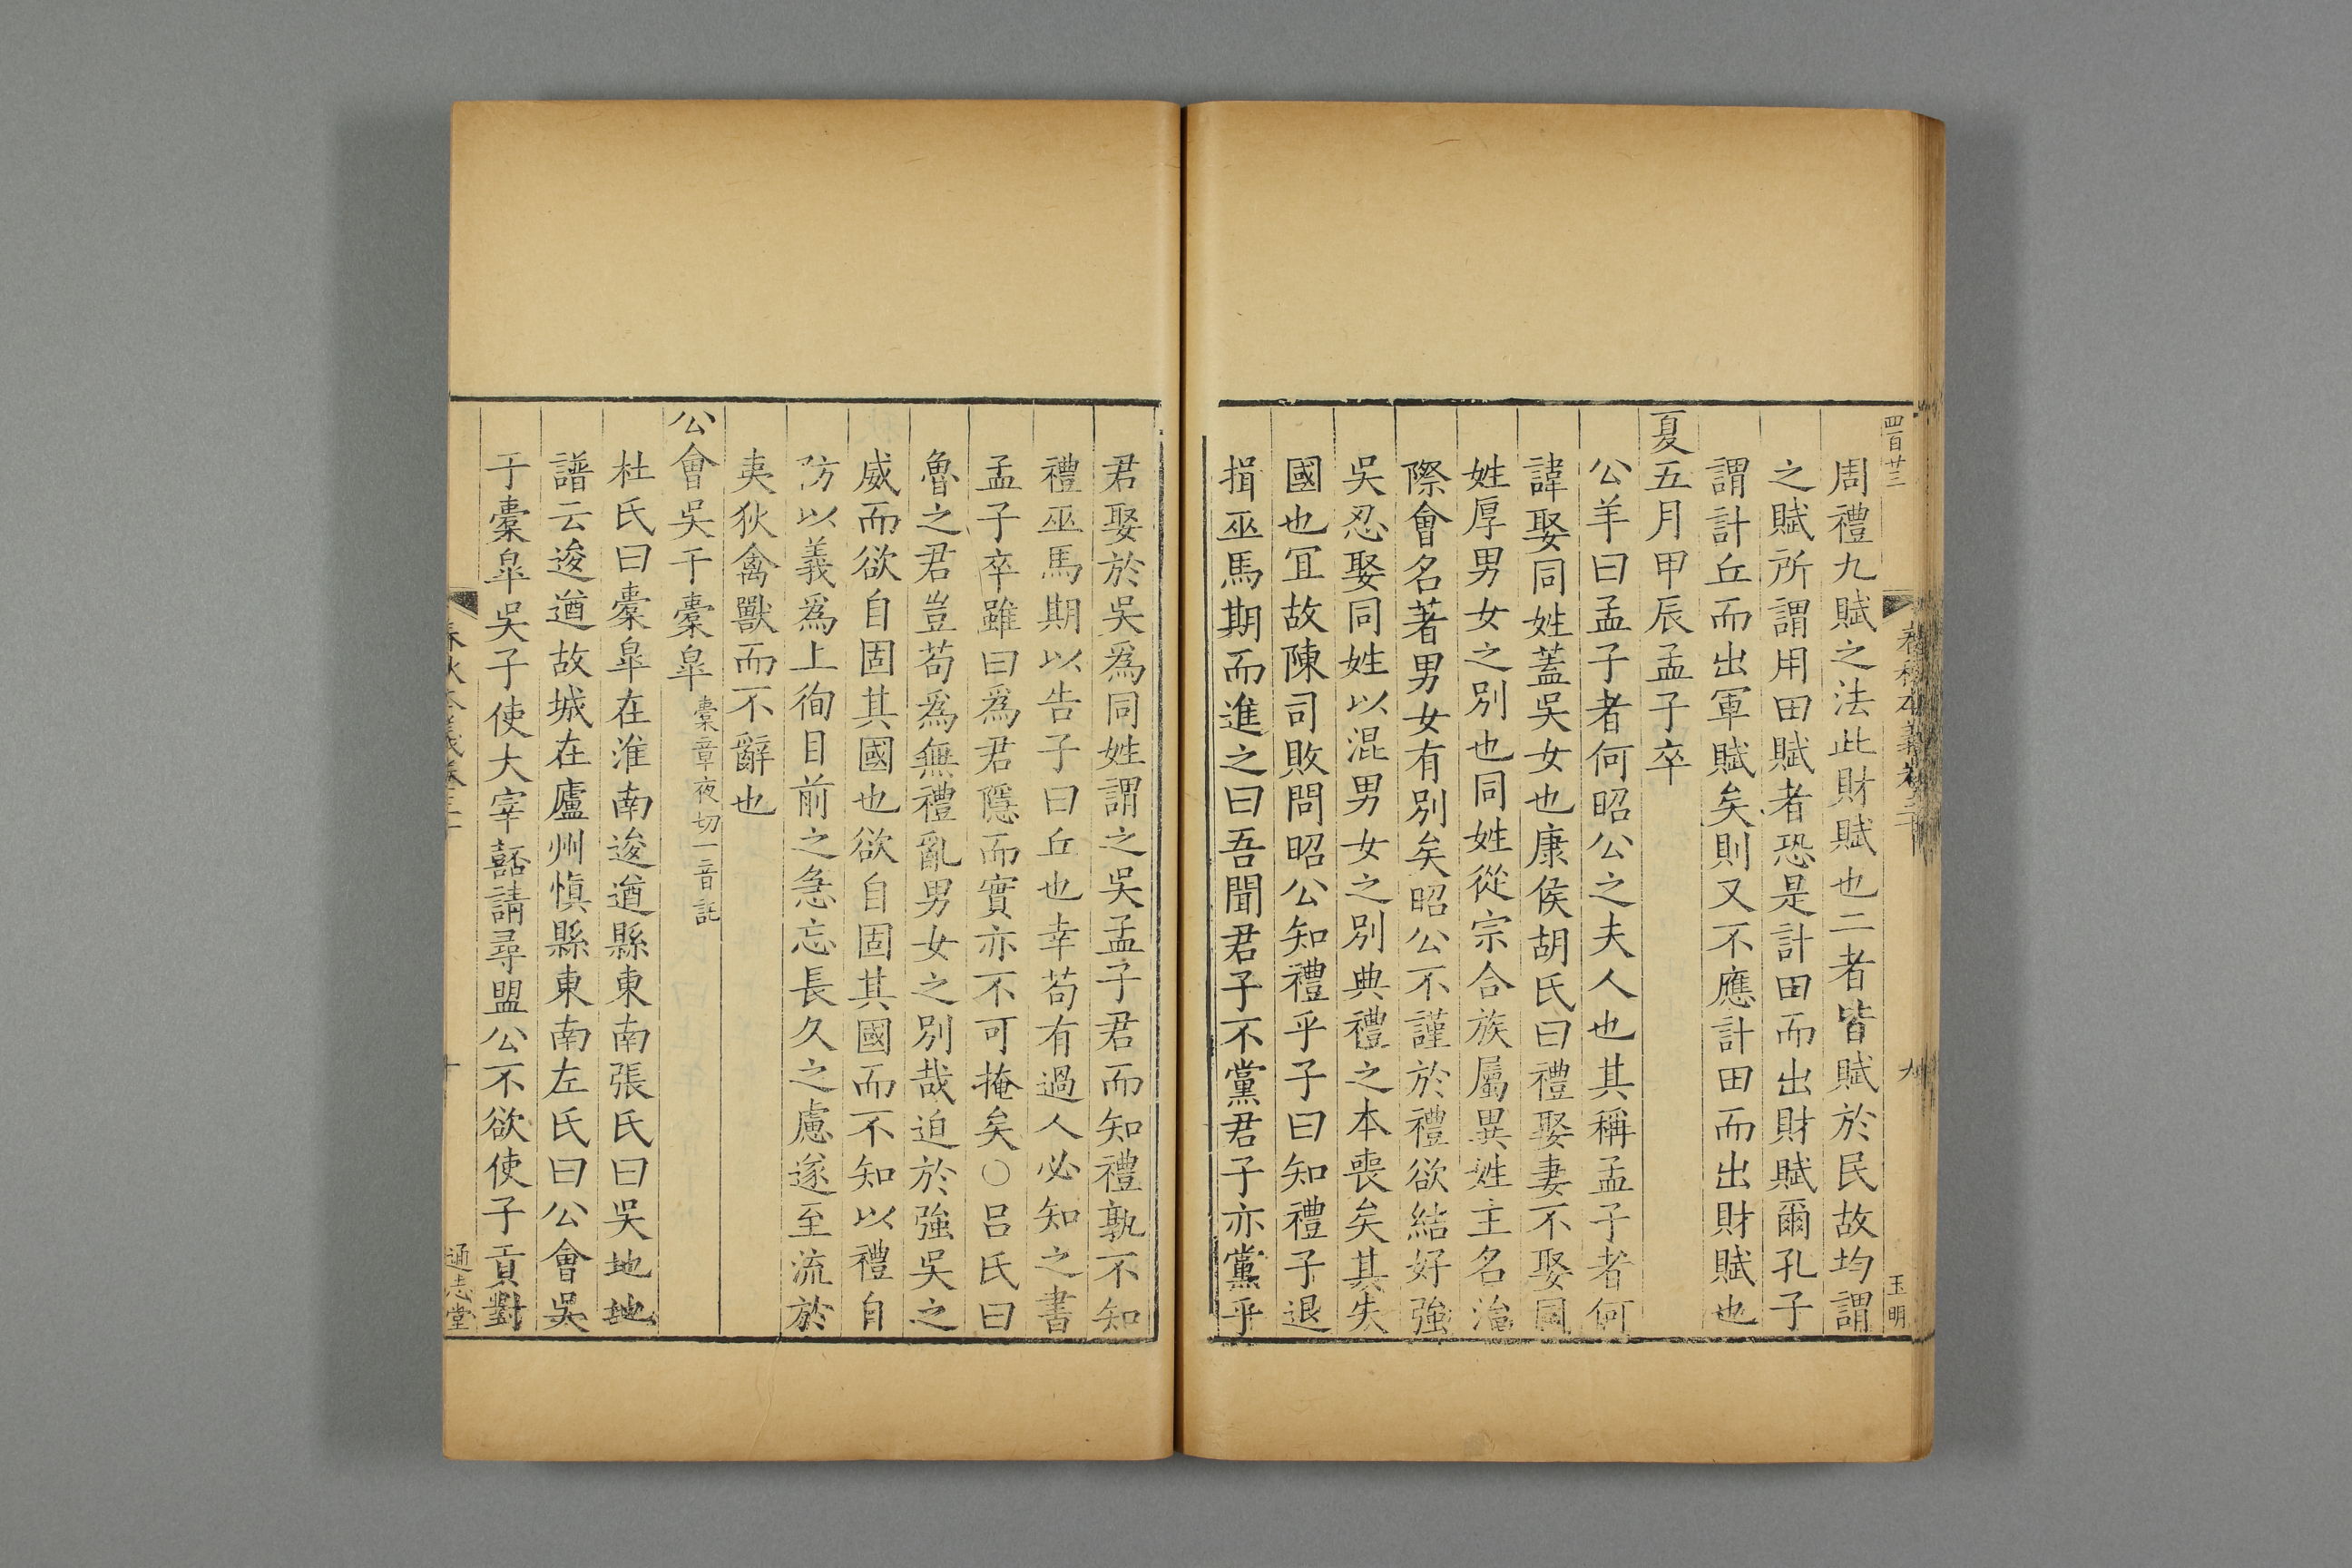 四百廿三
周禮九賦之法此財賦也二者皆賦於民故均謂
之賦所謂用田賦者恐是計田而出財賦爾孔子
謂計丘而出軍賦矣則又不應計田而出財賦也
夏五月甲辰孟子卒
公羊曰孟子者何昭公之夫人也其稱孟子者何
諱娶同姓蓋吳女也康侯胡氏曰禮娶妻不娶同
姓厚男女之別也同姓從宗合族屬異姓主名治
際會名著男女有別矣昭公不謹於禮欲結好強
吳忍娶同姓以混男女之別典禮之本喪矣其失
國也宜故陳司敗問昭公知禮乎子曰知禮子退
揖巫馬期而進之曰吾聞君子不黨君子亦黨乎
春秋本義卷三十
九
玉明
君娶於吳爲同姓謂之吳孟子君而知禮孰不知
禮巫馬期以告子曰丘也幸苟有過人必知之書
孟子卒雖曰爲君隱而實亦不可掩矣○呂氏曰
魯之君豈苟爲無禮亂男女之別哉迫於強吳之
威而欲自固其國也欲自固其國而不知以禮自
防以義爲上徇目前之急忘長久之慮遂至流於
夷狄禽獸而不辭也
公會吳于橐皐橐章夜切一音託
杜氏曰橐皐在淮南逡遒縣東南張氏曰吳地地
譜云逡遒故城在廬州慎縣東南左氏曰公會吳
于橐皐吳子使大宰嚭請尋盟公不欲使子貢對
春秋本義卷三十
通志堂